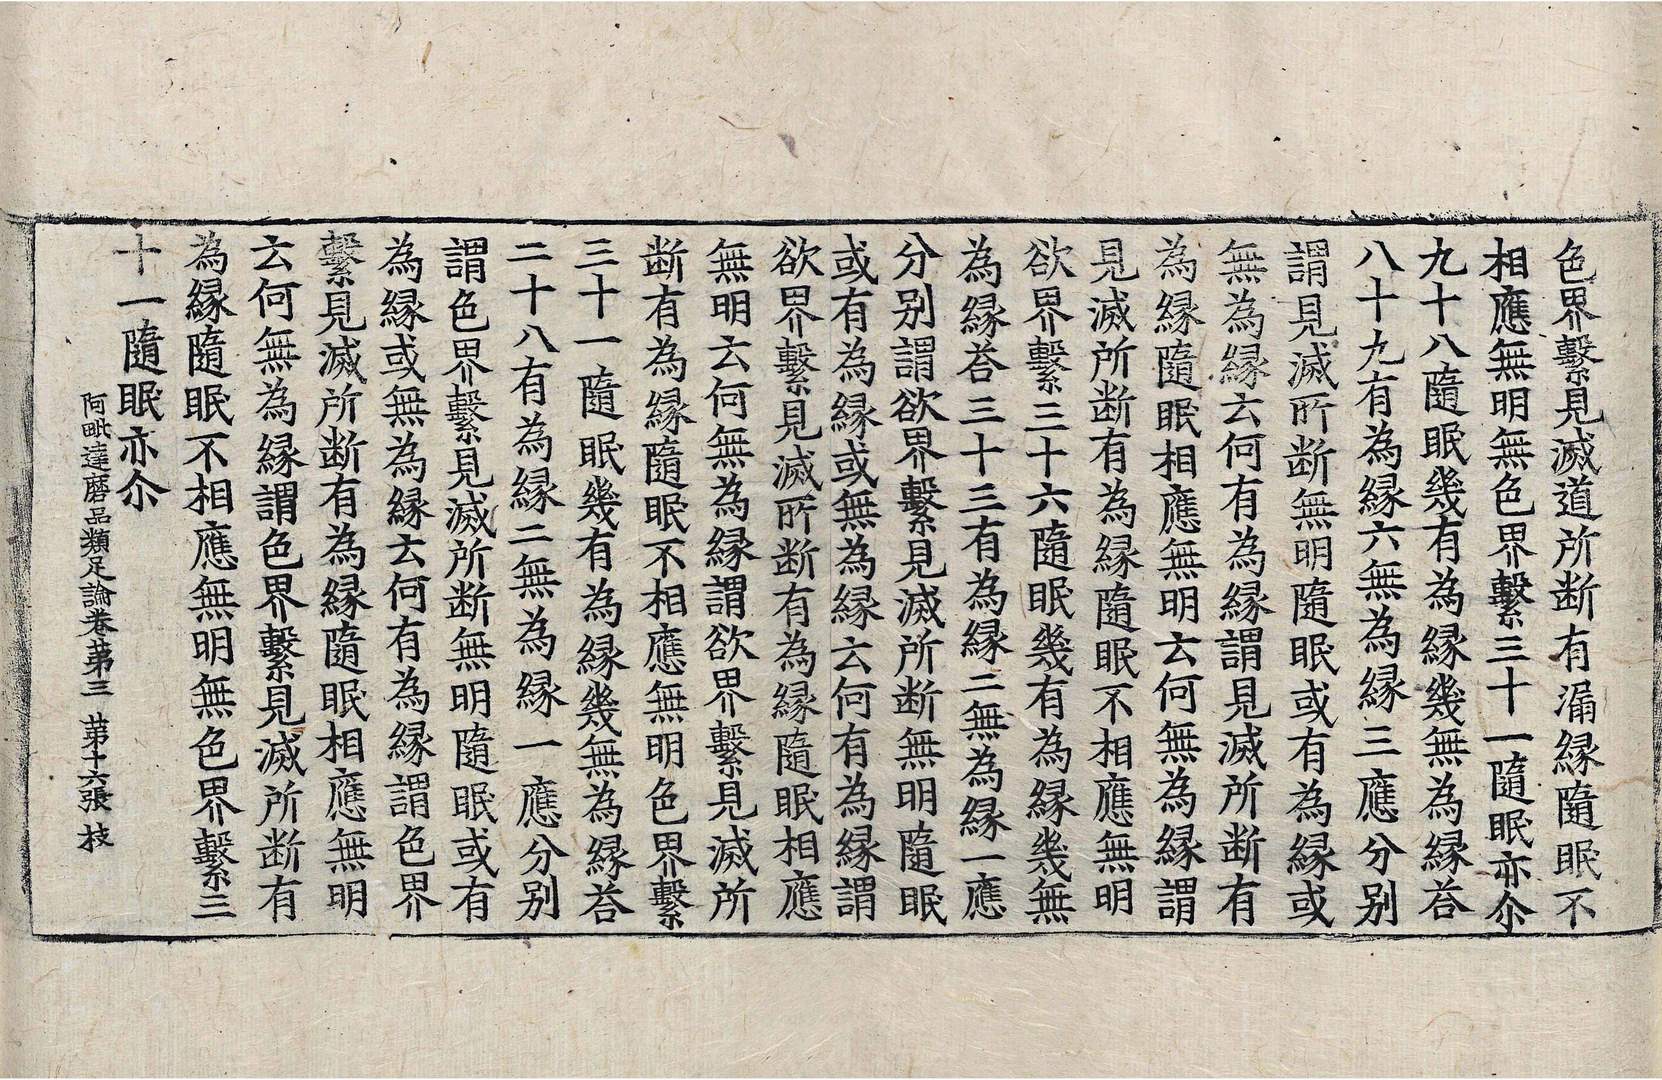 色界繫見滅道所断有漏縁隨眠不
相應無明無色界繫三十一隨眠亦尒
九十八隨眠幾有為縁幾無為縁荅
八十九有為縁六無為縁三應分别
謂見滅所断無明隨眠或有為縁或
無為縁云何有為縁謂見滅所断有
為縁隨眠相應無明云何無為縁謂
見滅所断有為縁隨眠不相應無明
欲界繫三十六隨眠幾有為縁幾無
為縁荅三十三有為縁二無為縁一應
分别謂欲界繫見滅所断無明隨眠
或有為縁或無為縁云何有為縁謂
欲界繫見滅所断有為縁隨眠相應
無明云何無為縁謂欲界繫見滅所
断有為縁隨眠不相應無明色界繫
三十一隨眠幾有為縁幾無為縁荅
二十八有為縁二無為縁一應分别
謂色界繫見滅所断無明隨眠或有
為縁或無為縁云何有為縁謂色界
繫見滅所断有為縁隨眠相應無明
云何無為縁謂色界繫見滅所断有
為縁隨眠不相應無明無色界繫三
十一隨眠亦尒
阿毗達磨品類足論卷苐三 苐十六張 枝